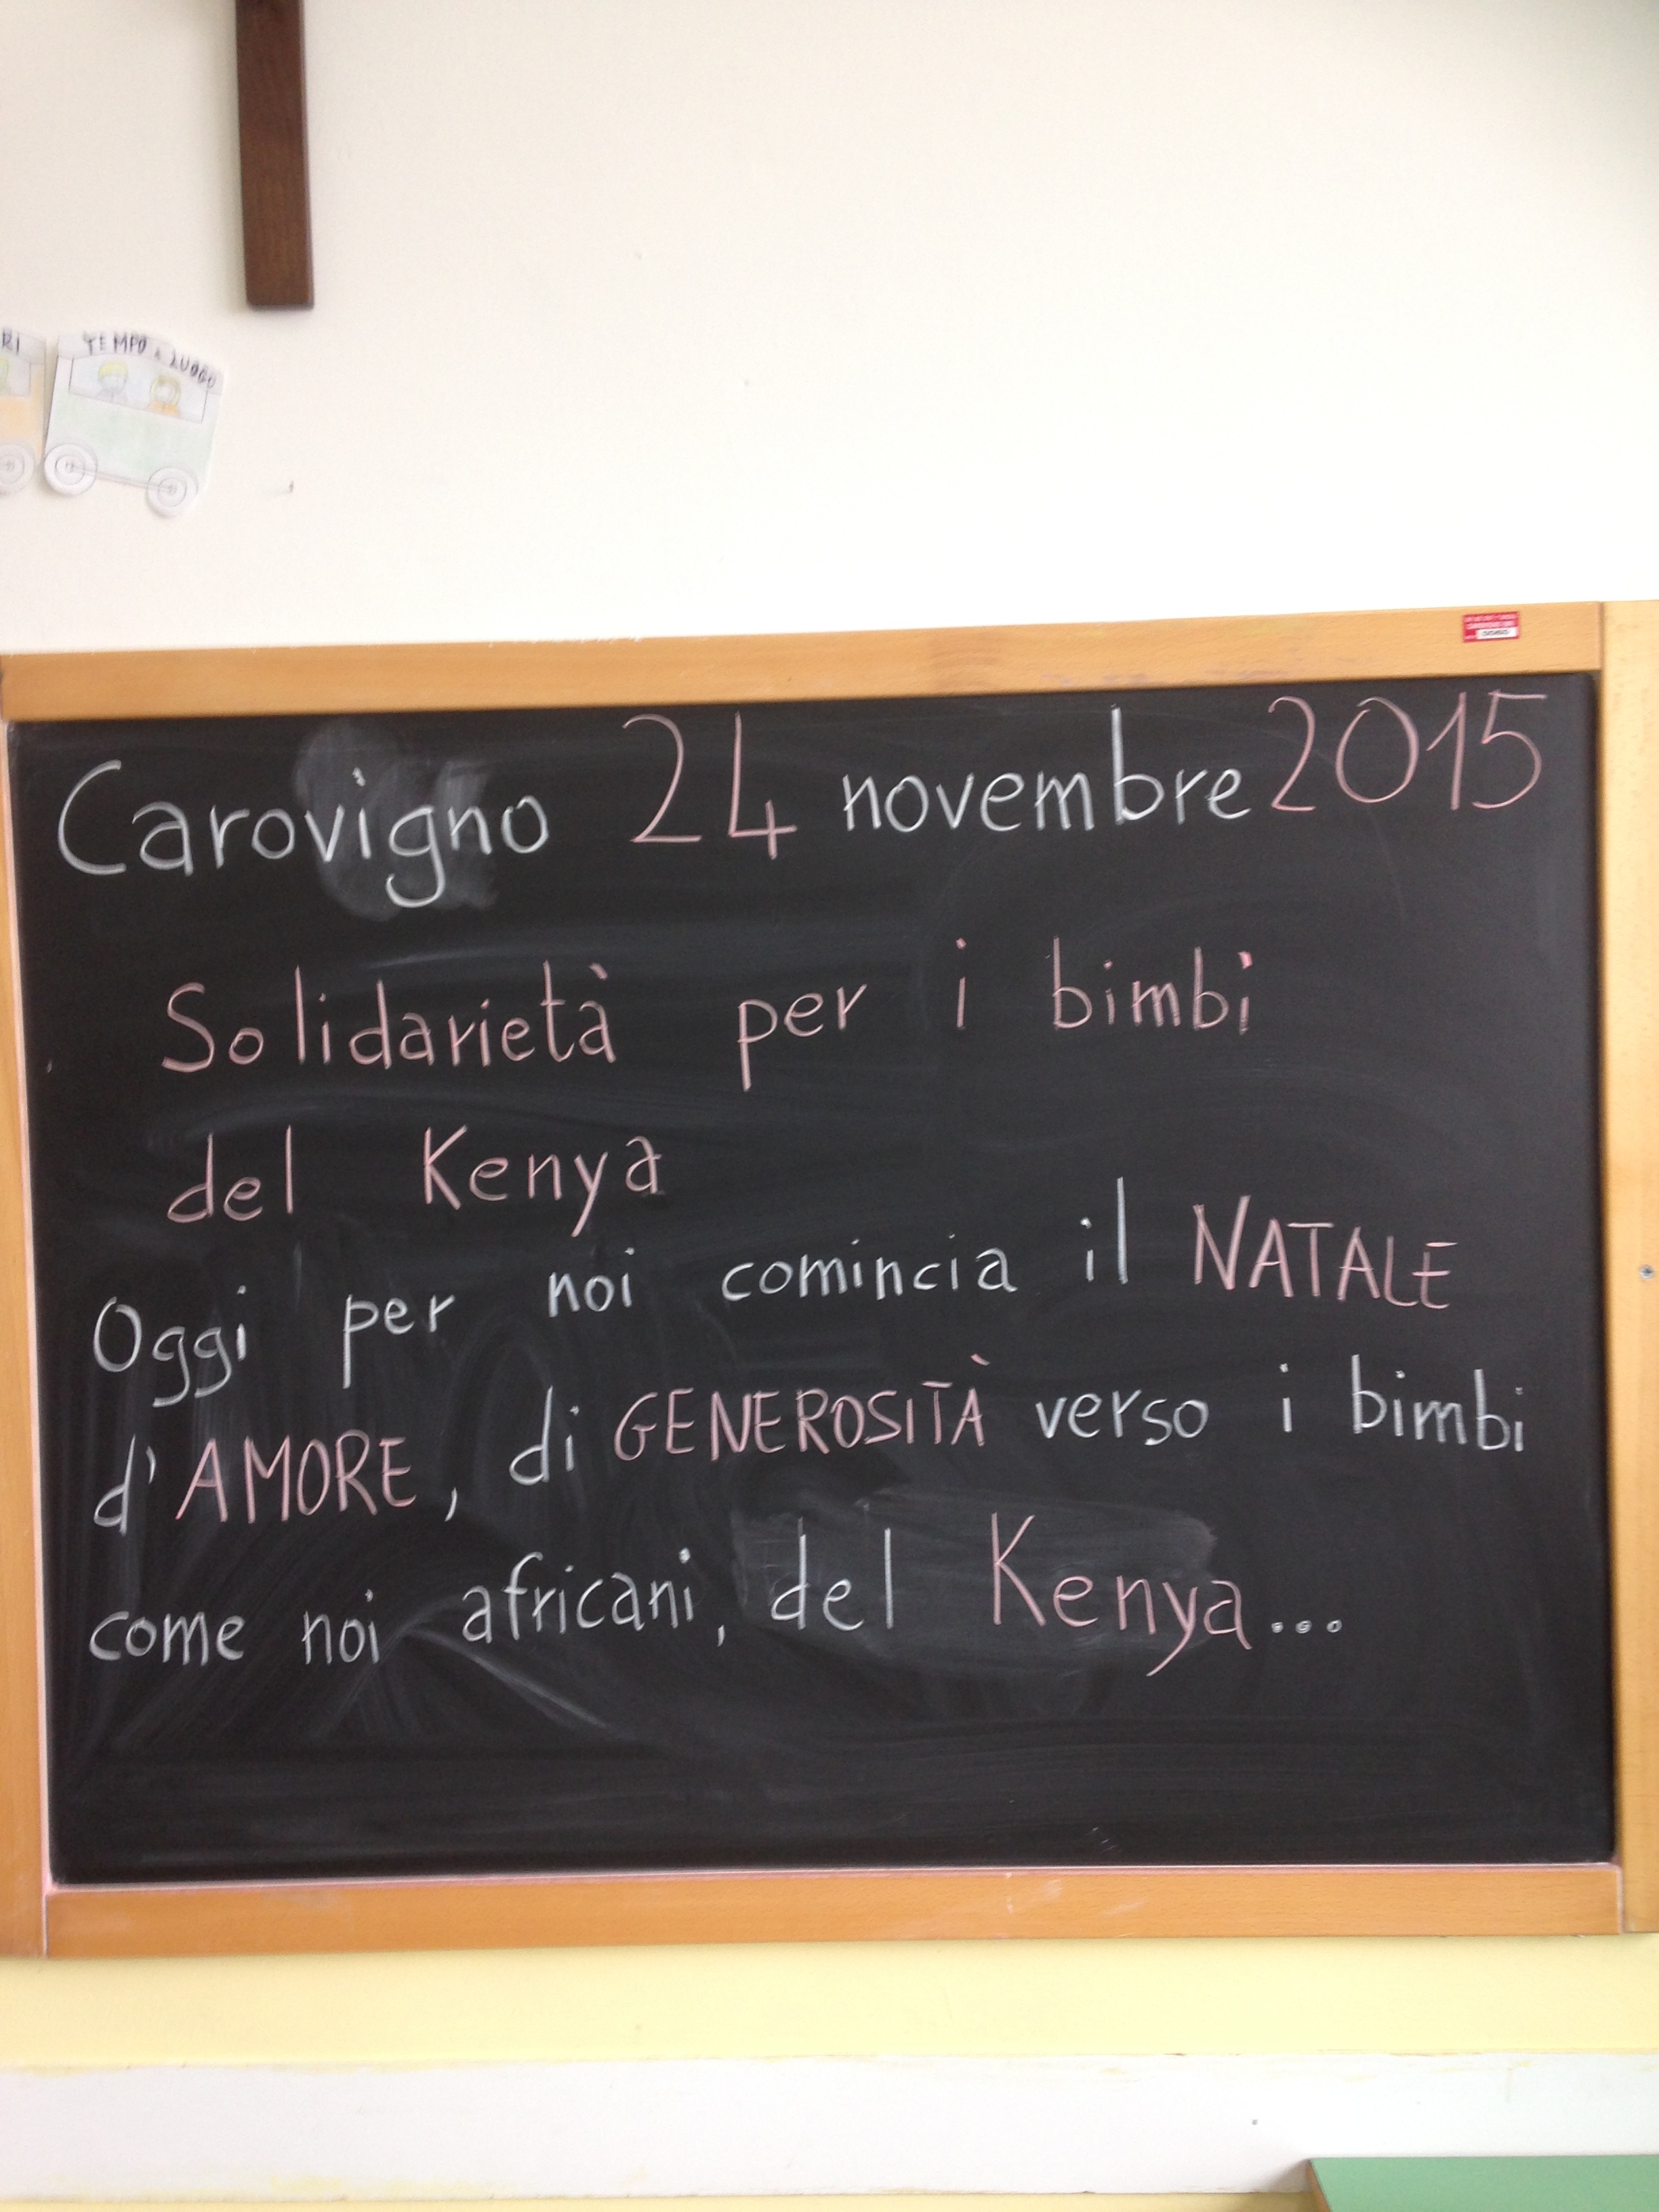 RI
TEMPO E LUOGO
Carovigno 24 novembre 2015
Solidarietà per i bimbi
del Kenya
Oggi per noi comincia il NATALE
d'AMORE, di GENEROSITÀ verso i bimbi
come noi africani, del Kenya...